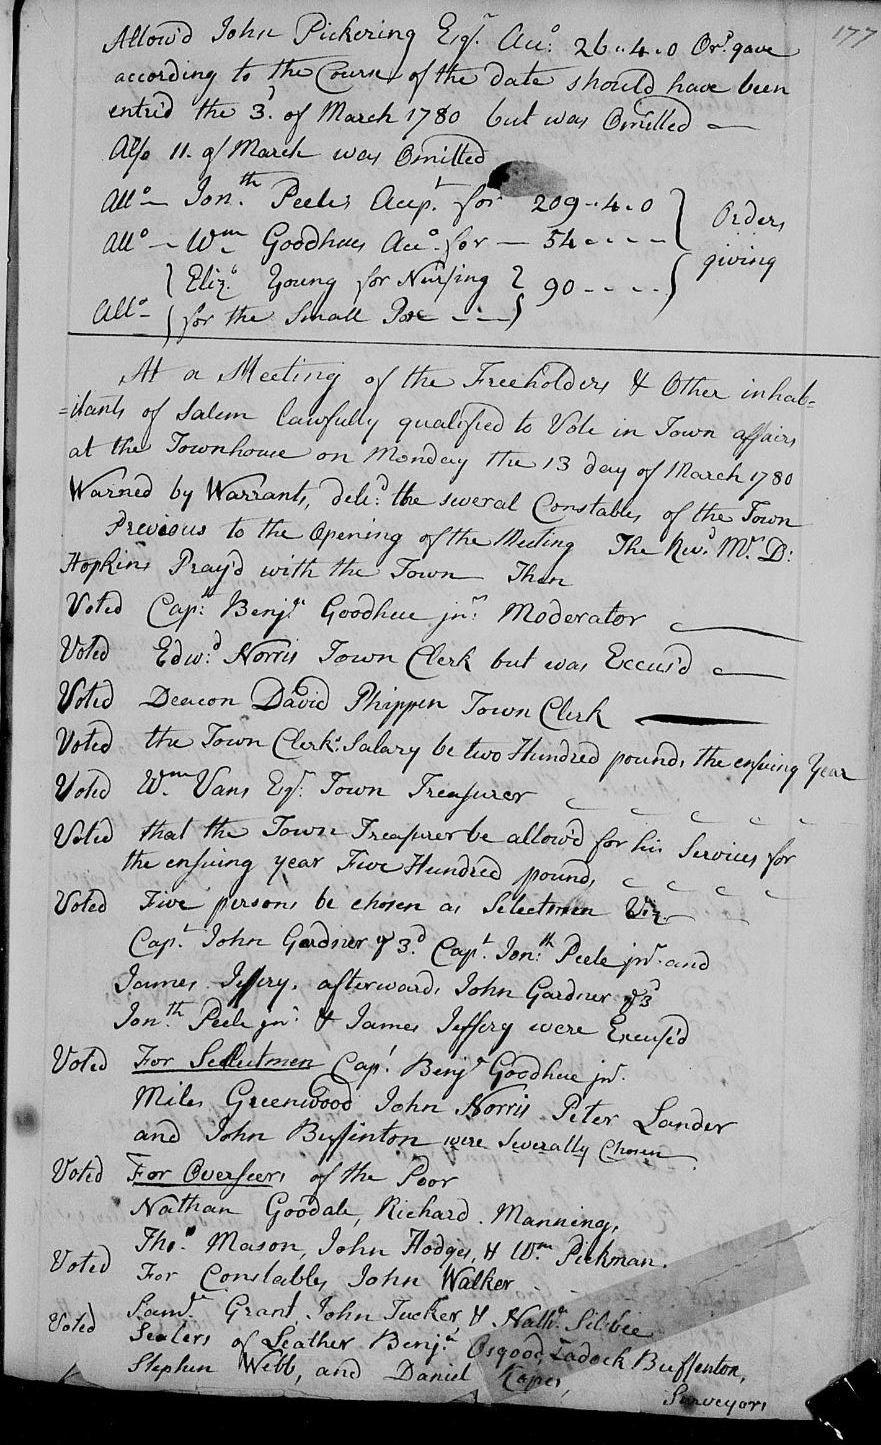 177
Allow'd John Pickering Esqr. Acco. 26..4.0 Ordr. gave
according to the Course of the date should have been
entrid the 3d. of March 1780 but was Omitted
Also 11. of March was Omitted
Allo— Jonth. Peeles Accpt. for 209..4.0 } Orders
Allo— Wm Goodhues Acco. for — 54 - - - - } giving
{ Eliza. Young for Nursing } 90 - - - - }
Allo— { for the Small Pox - - - }
At a Meeting of the Freeholders & Other inhab=
=itants of Salem lawfully qualified to Vote in Town affairs
at the Townhouse on Monday the 13 day of March 1780
Warned by Warrants, deld. the several Constables of the Town
Previous to the Opening of the Meeting The Revd. Mr. D:
Hopkins Pray'd with the Town — Then
Voted Capt. Benja. Goodhue jnr. Moderator
Voted Edwd. Norris Town Clerk but was Excus'd
Voted Deacon David Phippen Town Clerk
Voted the Town Clerks Salary be two Hundred pounds the ensuing Year
Voted Wm Vans Esqr. Town Treasurer
Voted that the Town Treasurer be allow'd for his Services for
the ensuing year Five Hundred pounds
Voted Five persons be chosen as Selectmen Viz.
Capt. John Gardner ye 3d. Capt. Jonth. Peele jnr. and
James Jeffery, afterwards John Gardner ye 3d
Jonth. Peele jnr. & James Jeffery were Excus'd
Voted For Sellectmen Capt. Benja. Goodhue jnr.
Miles Greenwood John Norris Peter Lander
and John Buffinton were Severally Chosen
Voted For Overseers of the Poor
Nathan Goodale, Richard Manning,
Thos. Mason, John Hodges, & Wm. Pickman.
Voted For Constables John Walker
Saml. Grant, John Tucker, & Nathl. Silsbee
Voted Sealers of Leather Benja. Osgood, Zadock Buffenton,
Stephen Webb, and Daniel Ropes,
Surveyors